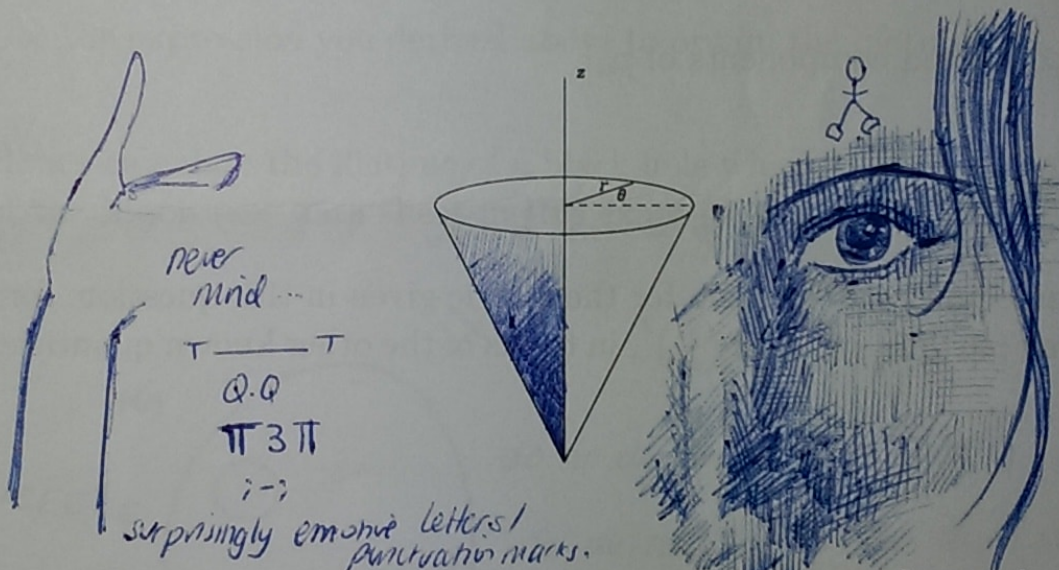 z
r
θ
never
mind...
T———T
Q.Q
π3π
;-;
surprisingly emotive letters/
punctuation marks.